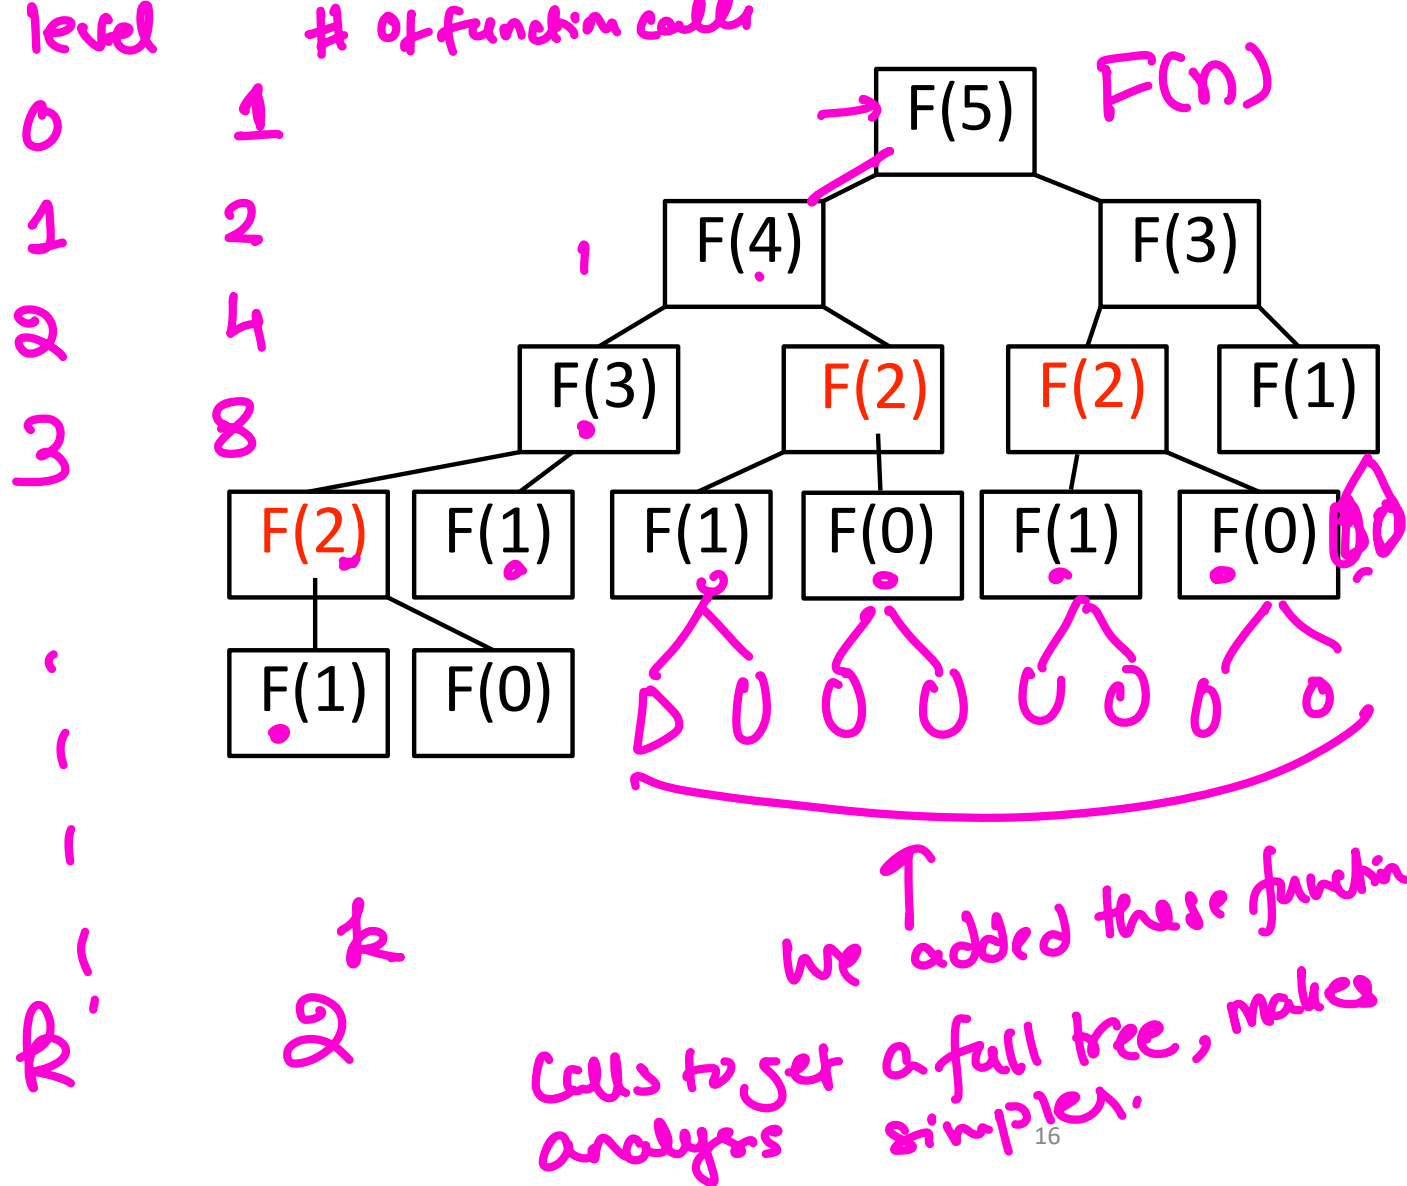 level # of function calls
0 1
F(5) F(n)
1 2
F(4) F(3)
2 4
F(3) F(2) F(2) F(1)
3 8
F(2) F(1) F(1) F(0) F(1) F(0)
F(1) F(0)
we added these function
k 2^k
calls to get a full tree, makes
analysis simpler.
16